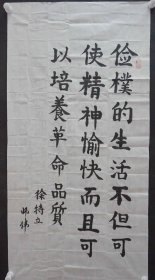 俭樸的生活不但可
使精神愉快而且可
以培養革命品質
徐特立